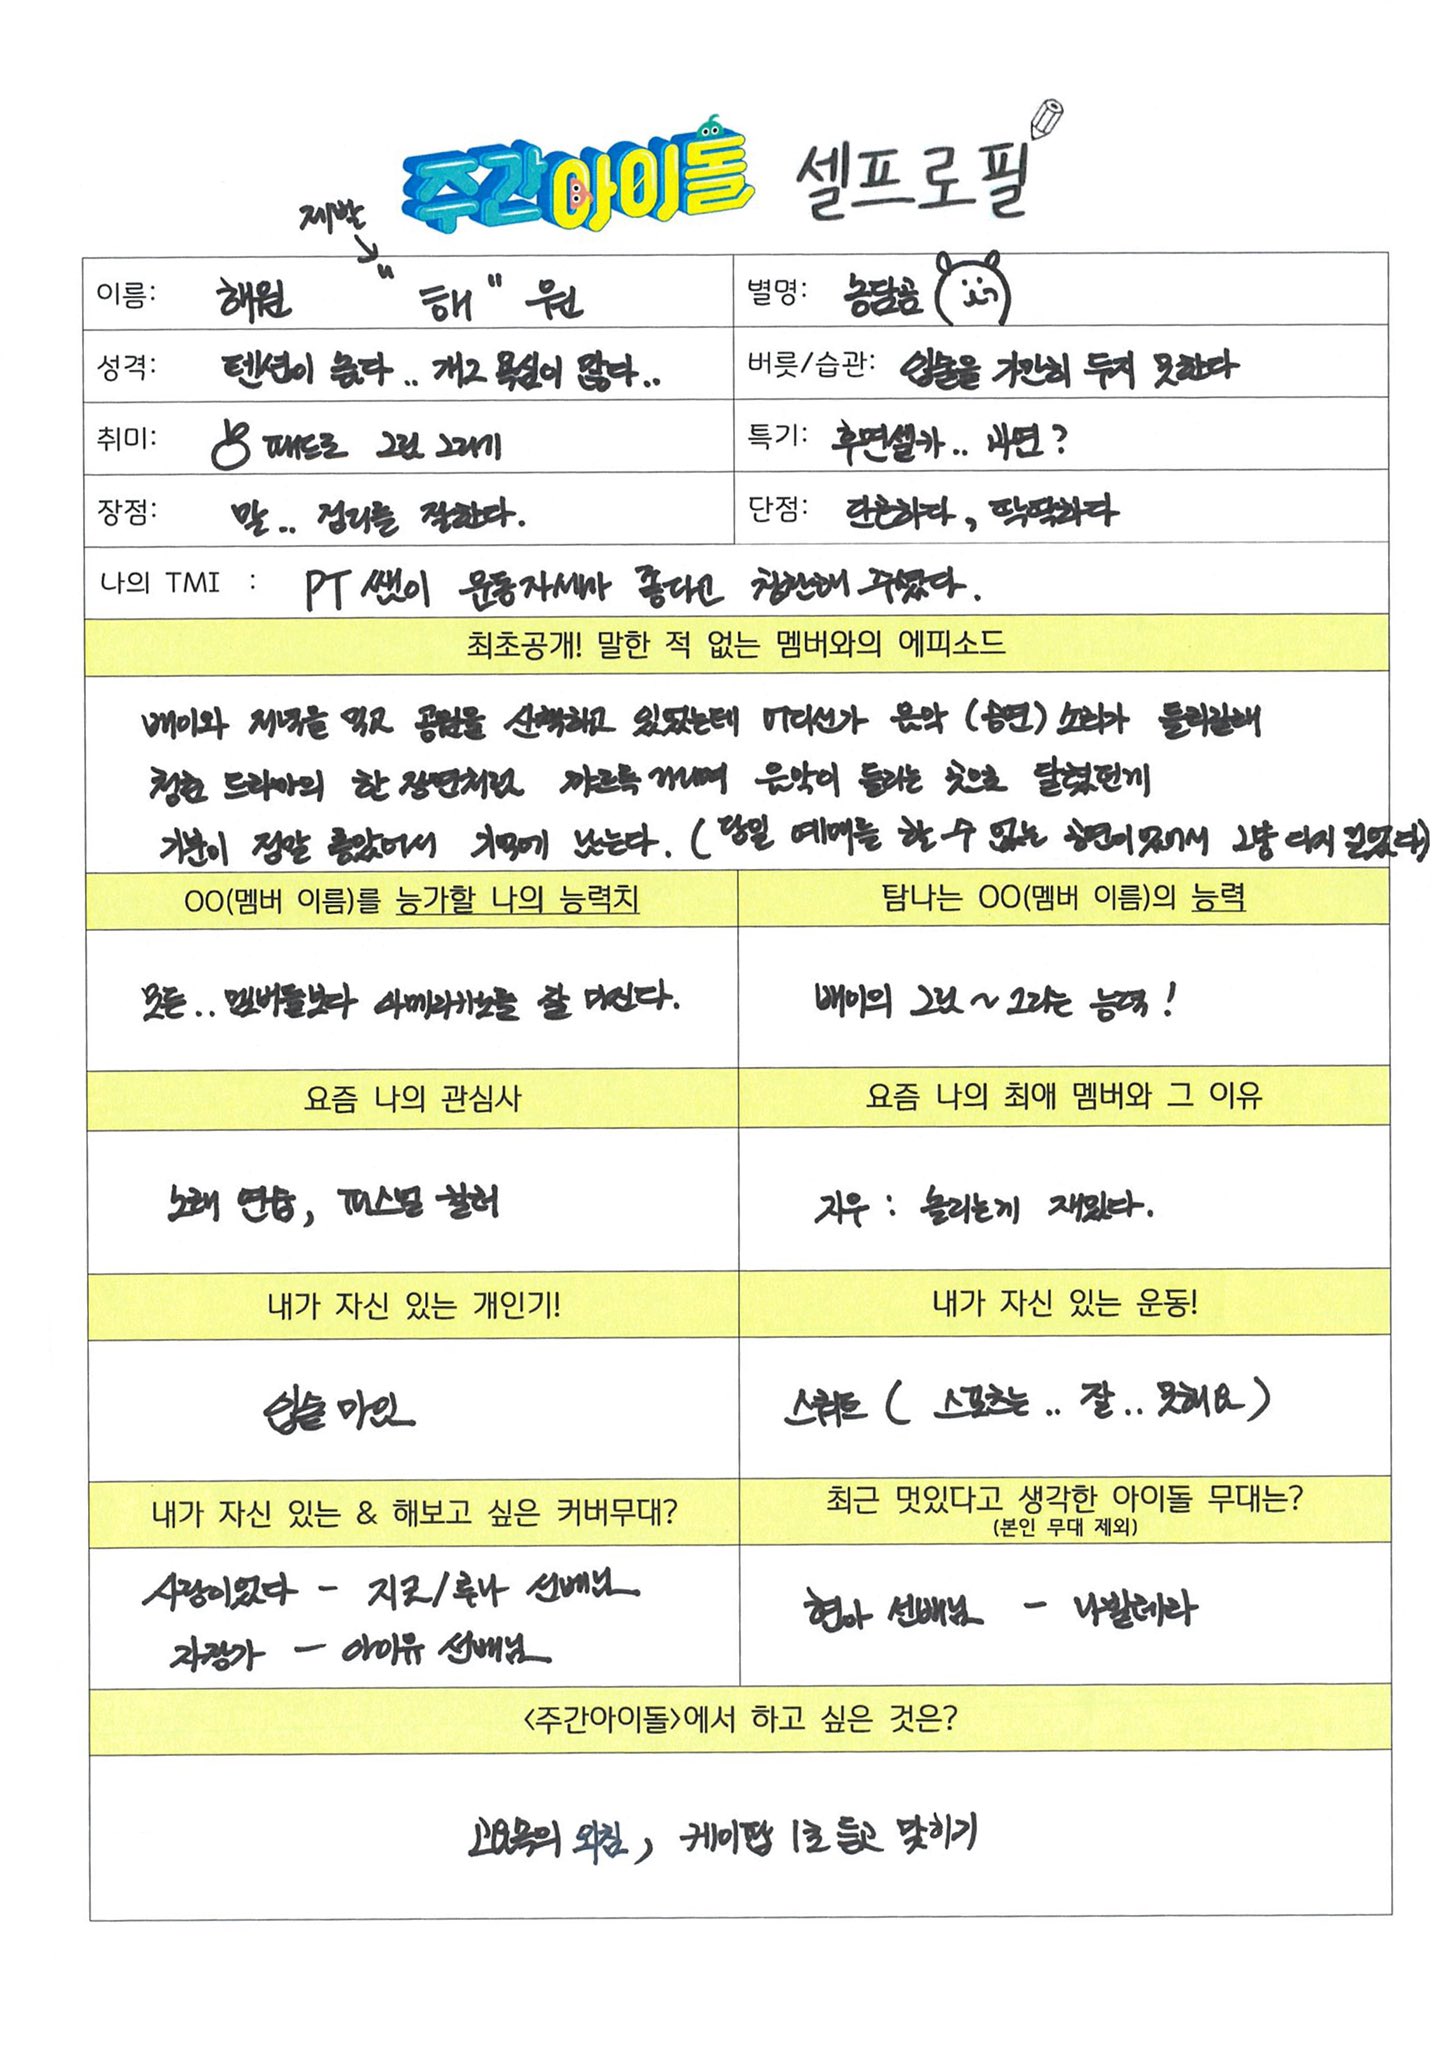 주간아이돌 셀프로필
제발
이름: 해원 "해" 원
별명: 농담곰
성격: 텐션이 높다.. 개그 욕심이 많다..
버릇/습관: 입술을 가만히 두지 못한다
취미: 패드로 그림 그리기
특기: 후면셀카.. 과연?
장점: 말.. 정리를 잘한다.
단점: 단순하다, 딱딱하다
나의 TMI : PT 쌤이 운동자세가 좋다고 칭찬해 주셨다.
최초공개! 말한 적 없는 멤버와의 에피소드
배이와 저녁을 먹고 공원을 산책하고 있었는데 어디선가 음악 (공연) 소리가 들리길래
청춘 드라마의 한 장면처럼 꺄르륵 거리며 음악이 들리는 곳으로 달렸던게
기분이 정말 좋았어서 기억에 남는다. (당일 예매를 할 수 없는 공연이었어서 그냥 다시 걸었다)
OO(멤버 이름)를 능가할 나의 능력치
탐나는 OO(멤버 이름)의 능력
모든.. 멤버들보다 아메리카노를 잘 마신다.
배이의 그림~그리는 능력!
요즘 나의 관심사
요즘 나의 최애 멤버와 그 이유
노래 연습, 퍼스널 컬러
지우 : 놀리는게 재밌다.
내가 자신 있는 개인기!
내가 자신 있는 운동!
입술 마인
스쿼트 ( 스포츠는.. 잘.. 못해요)
내가 자신 있는 & 해보고 싶은 커버무대?
최근 멋있다고 생각한 아이돌 무대는?
(본인 무대 제외)
사랑이었다 - 지코/루나 선배님
자장가 - 아이유 선배님
현아 선배님 - 나빌레라
<주간아이돌>에서 하고 싶은 것은?
고요속의 외침, 케이팝 1초 듣고 맞히기